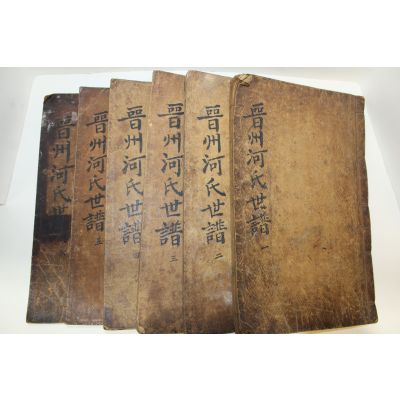 晉州河氏世譜 一
晉州河氏世譜 二
晉州河氏世譜 三
晉州河氏世譜 四
晉州河氏世譜 五
晉州河氏世